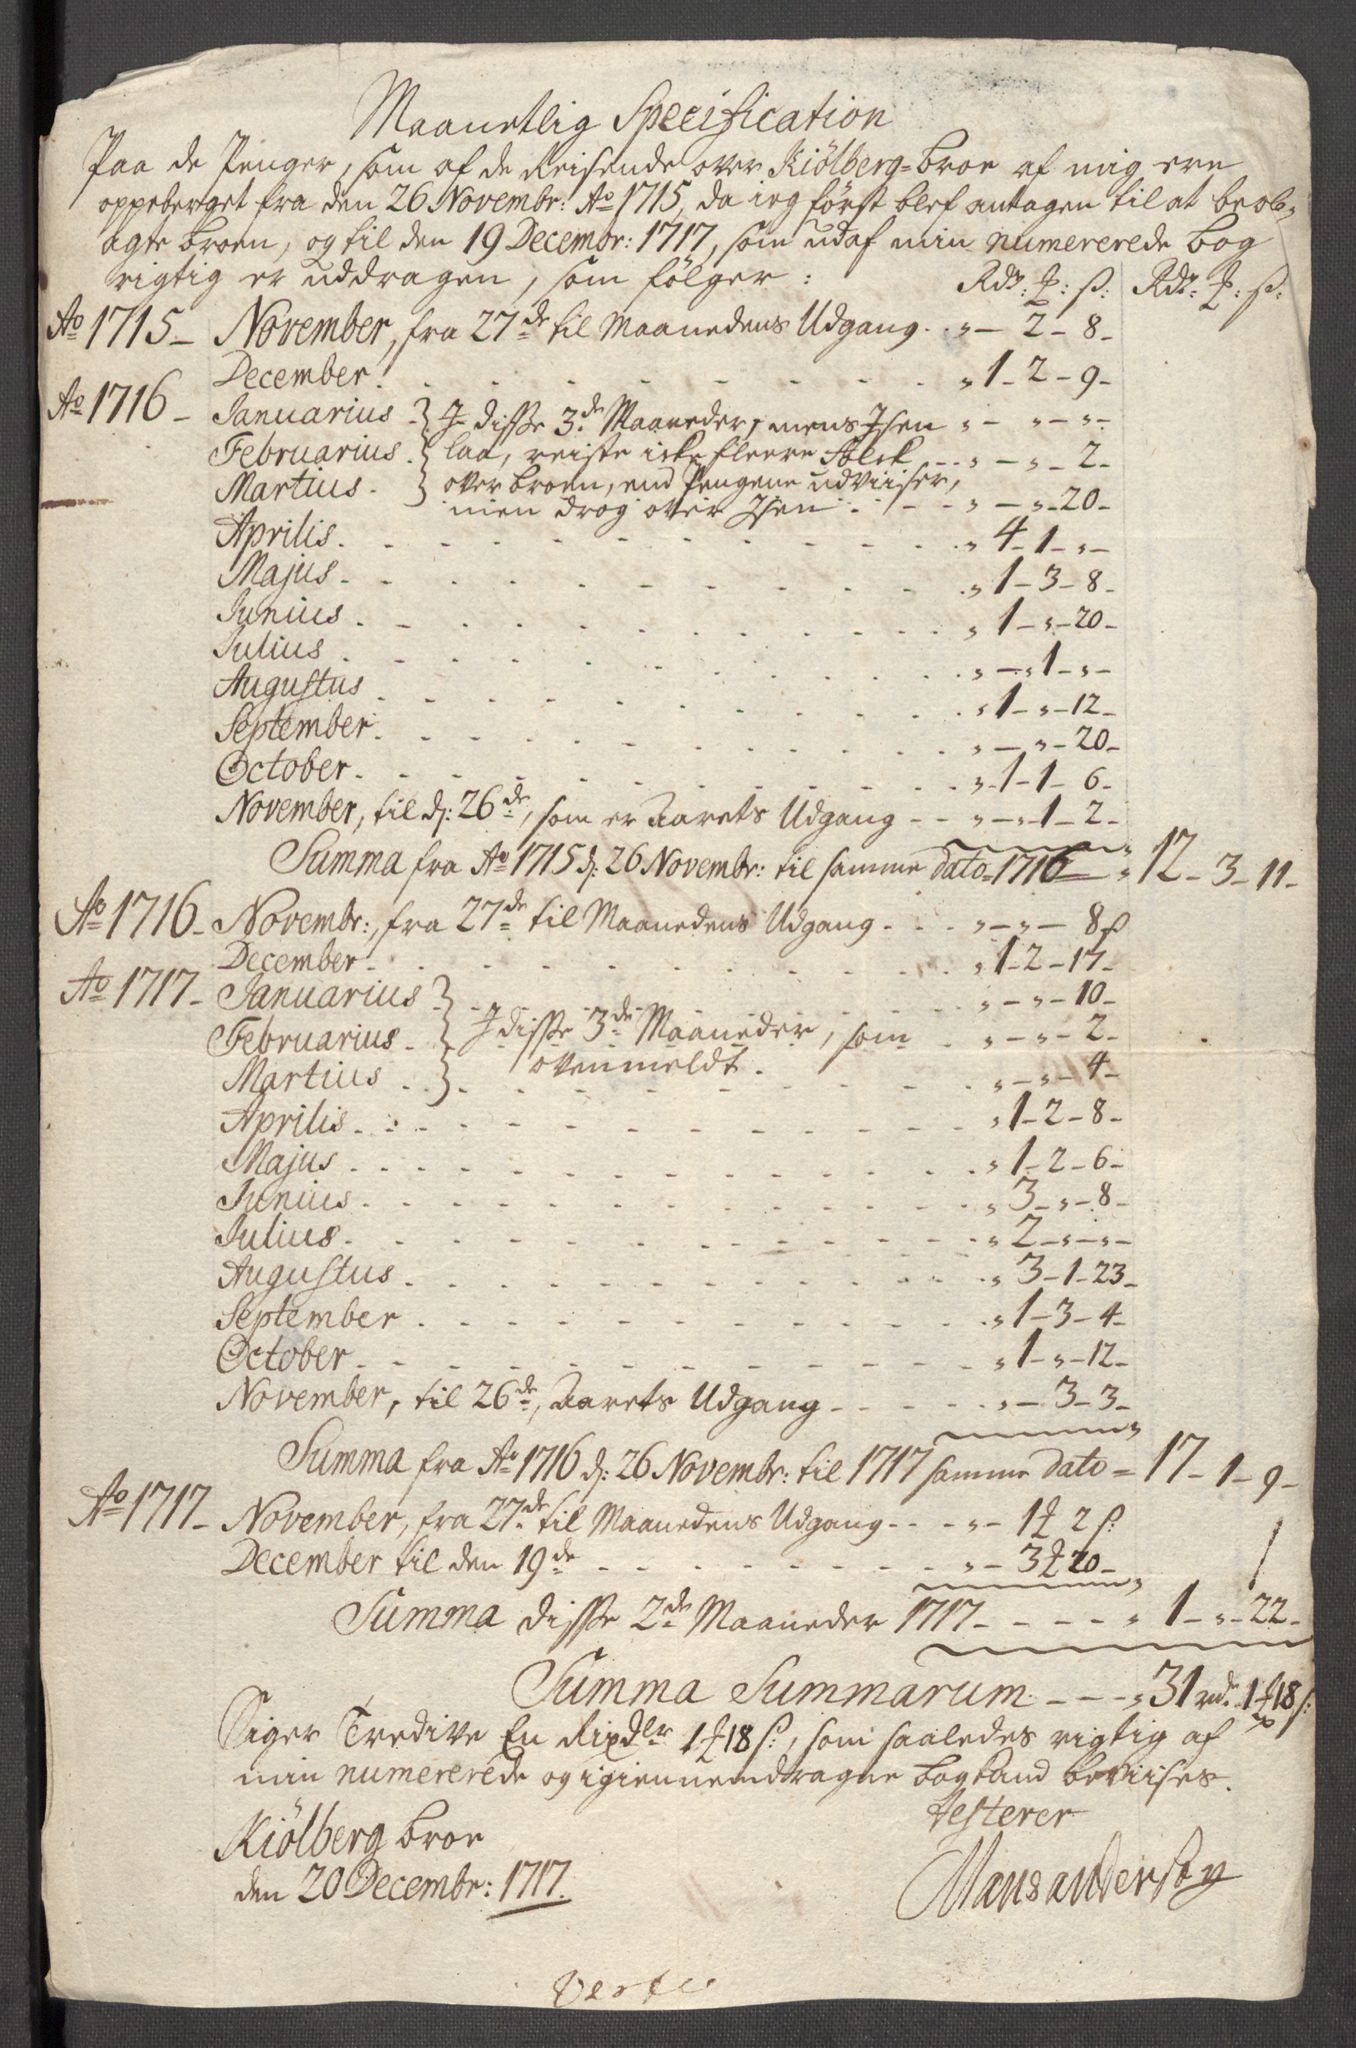 Maanetlig Specification
Paa de Penger, som af de Reisende over Kiölberg=broe af mig ere
oppeberget fra den 26 Novembr: Ao 1715, da ieg först blef antagen til at beob-
agte broen, og til den 19 Decembr: 1717, som udaf min numererede bog
rigtig er uddragen, som fölger: Rdr: ₰: s: Rdr. ₰: s:
Ao 1715 - November, fra 27de til Maanedens Udgang . . „ - 2 - 8 -
December . . . . . . „ 1 - 2 - 9 -
Ao 1716 - Januarius - } I disse 3de Maaneder, mens Isen „ - „ - „ -
Februarius . } laa, reiste icke fleere folck - - „ - „ - 2 -
Martius - } over broen, end Pengene udviiser,
men drog over Isen . - - „ - „ - 20 -
Aprilis . . . . . . „ 4 - 1 - „ -
Majus . . . . . . „ 1 - 3 - 8 -
Junius . . . . . . „ 1 - „ - 20 -
Julius . . . . . . „ - „ 1 - „ -
Augustus . . . . . . „ 1 - „ - 12 -
September . . . . . . „ - „ - 20 -
October . . . . . . „ 1 - 1 - 6 -
November, til d: 26de, som er Aarets Udgang - - „ - „ 1 - 2 -
Summa fra Ao 1715 d: 26 Novembr: til samme dato = 1716 „ 12 - 3 - 11 -
Ao 1716 - Novembr:, fra 27de til Maanedens Udgang . . . „ - „ - 8 s
December . . . . . . „ 1 - 2 - 17 -
Ao 1717 - Januarius } . . . . „ - „ - 10 -
Februarius . } I disse 3de Maaneder, som . „ - „ - 2 -
Martius . . } ovenmeldt . . . „ - „ - 4 -
Aprilis . . . . . . „ 1 - 2 - 8 -
Majus . . . . . . „ 1 - 2 - 6 -
Junius . . . . . . „ 3 - „ - 8 -
Julius . . . . . . „ 2 - „ - „ -
Augustus . . . . . . „ 3 - 1 - 23 -
September . . . . . . „ 1 - 3 - 4 -
October . . . . . . „ 1 - „ - 12 -
November, til 26de, Aarets Udgang - - - - - „ - 3 - 3 -
Summa fra Ao 1716 d: 26 Novembr: til 1717 samme dato = 17 - 1 - 9 -
Ao 1717 - November, fra 27de til Maanedens Udgang - - - „ - 1 ₰ 2 s:
December til den 19de - - - - - „ - 3 ₰ 20 -
Summa disse 2de Maaneder 1717 - - - - „ 1 - „ - 22 -
Summa Summarum - - - „ 31 rd. 1 ₰ 18 s:
Siger Tredive En Rixdlr 1 ₰ 18 s:, som saaledes rigtig af
min numererede og igiennemdragne bog kand beviises.
Testerer
Kiölberg broe
den 20 Decembr: 1717.
Mans andersen
Verte